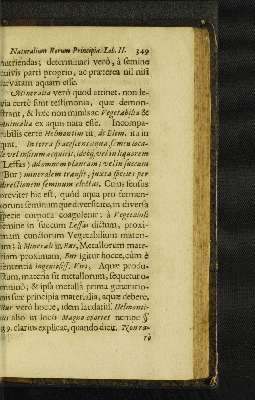 Naturalium Rerum Principia. Lib. II. 349
nutriendas; determinari verò, à semine
cuivis parti proprio, ac præterea nil nisi
larvatam aquam esse.
Mineralia verò quod attinet, non le-
via certè sunt testimonia, quæ demon-
strant, & hæc non minùs ac Vegetabilia &
Animalia ex aqua nata esse. Incompa-
rabilis certè Helmontius in
quit. In terra fracescens aqua, semen loca-
le vel insitum acquirit, ideoq; vel in liquorem
(Leffas) ad omnem plantam; vel in succum
(Bur) mineralem transit, juxta species per
directionem seminum electas. Cujus sensus
breviter hic est, quòd aqua pro fermen-
torum seminumque diversitate, in diversa
specie corpora coaguletur; à Vegetabili
semine in succum Leffas dictum, proxi-
mam cunctorum Vegetabilium materi-
am; à Minerali in Bur, Metallorum mate-
riam proximam, Bur igitur hocce, cùm è
sententia ingeniosiss. Viri, Aquæ produ-
ctum, materia sit metallorum, sequetur o-
mninò; & ipsa metalla prima generatio-
nis suæ principia materialia, aquæ debere.
Bur verò hocce, idem laudatiss. Helmonti-
us alio in loco Magno oportet nempe §
39. clariùs explicat, quando dicit. Non ra-